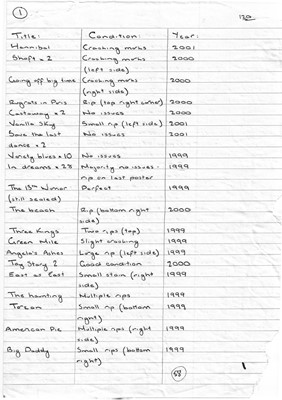 1
Title: Condition: Year:
Hannibal Creasing marks 2001
Shaft x 2 Creasing marks 2000
(left side)
Going off big time Creasing marks 2000
(right side)
Rugrats in Paris Rip (top right corner) 2000
Castaway x 2 No issues 2000
Vanilla Sky Small rip (left side) 2001
Save the last No issues 2001
dance x 2
Varsity blues x 10 No issues 1999
In dreams x 28 Majority no issues. 1999
rip on last poster
The 13th Warrior Perfect 1999
(still sealed)
The beach Rip (bottom right 2000
side)
Three Kings Two rips (top) 1999
Green Mile Slight creasing 1999
Angela's Ashes Large rip (left side) 1999
Toy Story 2 Good condition 2000
East is East Small stain (right 1999
side)
The haunting Multiple rips 1999
Tarzan Small rip (bottom 1999
right)
American Pie Multiple rips (right 1999
side)
Big Daddy Small rips (bottom 1999
right)
68